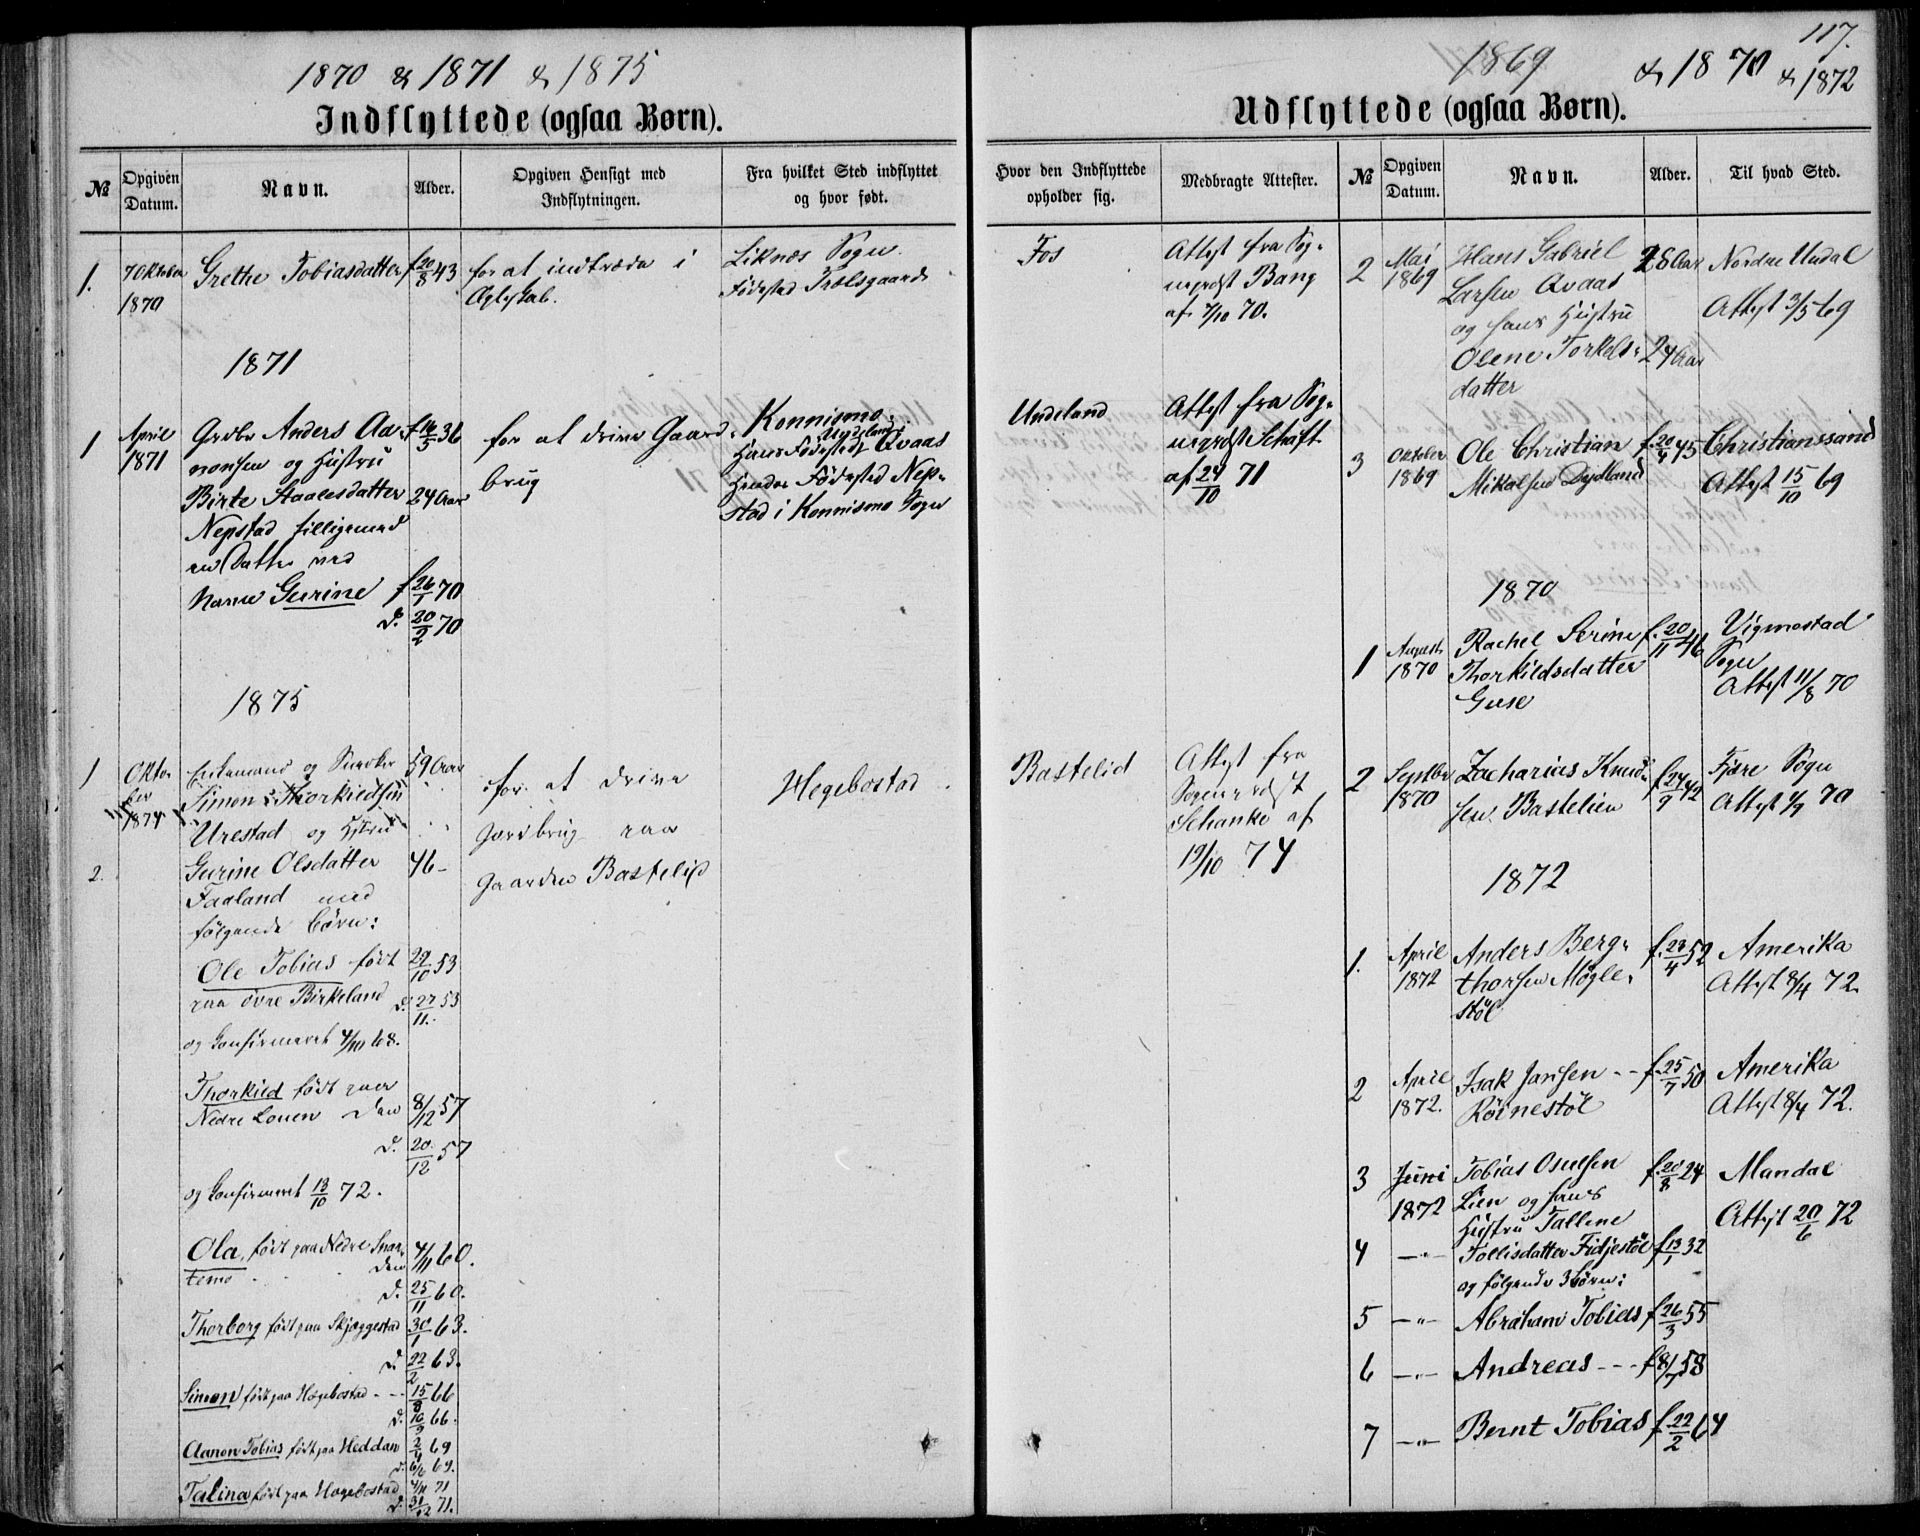 1870 & 1871 & 1875
Indflyttede (ogsaa Børn).
№
Opgiven Datum.
Navn.
Alder.
Opgiven Hensigt med Indflytningen.
Fra hvilket Sted indflyttet og hvor født.
1.
7 Oktober
1870
Grethe Tobiasdatter
f. 20/8 43
for at indtræde i
Ægteskab.
Liknes Sogn.
Fødested Trælsgaard
1871
1
April
1871
Grdbr Anders Aa-
nonsen og Hustru
Birte Staalesdatter
Nepstad tilligemed
en Datter ved
Navn Gurine
f. 16/3 36
24 Aar
f. 26/1 70
d. 20/2 70
for at drive Gaard-
brug
Konnismo.
Hans Fødested Qvaas
Hendes Fødested Nep-
stad i Konnismo Sogn
1875
1
Okto
ber
1874
Enkemand og
Simon Thorkildsen
Urestad og Hstru
59 Aar
2.
Gurine Olsdatter
Faaland med
følgende Børn:
46 -
for at drive
Jordbrug paa
Gaarden Bastelid
Hegebostad
Ole Tobias født
paa øvre Birkeland
og Konfirmeret 4/10 68.
29/10 53
d. 27/11 53
Thorkild født paa
Nedre Louen den
8/12 57
d. 20/12 57
og Konfirmeret 13/10 72.
Ola, født paa Nedre Snar-
temo den
4/11 60.
d. 25/11 60.
Thorborg født paa Skjeggestad
30/1 63.
d. 22/2 63.
Simon født paa Hægebostad
15/8 66
d. 10/9 66.
Aanon Tobias født paa Heddan
2/4 69
d. 6/6 69.
Talina født paa Hægebostad
4/11 71
d. 31/12 71.
117.
1869 & 1870 & 1872
Udflyttede (ogsaa Børn).
Hvor den Indflyttede opholder sig.
Medbragte Attester.
№
Opgiven Datum.
Navn.
Alder.
Til hvad Sted.
Fos
Attest fra Sog-
neprest Bang
af 7/10 70.
Undeland
Attest fra Sog-
neprest Schaft
af 24/10 71
Bastelid
Attest fra
Sogneprest
Schanke af
19/10 74
2
Mai
1869
Hans Gabriel
Larsen Qvaas
og hans Hustru
Olene Torkels-
datter
28 Aar
24 Aar
Nordre Undal
Attest 3/5 69
3
Oktober
1869
Ole Christian
Mikalsen Dydland
f. 20/4 45
Christianssand
Attest 15/10 69
1870
1
August
1870
Rachel Serine
Thorkildsdatter
Guse
f. 20/11 46
Vigmostad
Sogn
Attest 11/8 70
2
Septbr
1870
Zacharias Knud-
sen Bastelien
f. 24/9 42
Fjære Sogn
Attest 1/9 70
1872
1.
April
1872
Anders Berg-
thorsen Møgle-
støl
f. 23/4 52
Amerika
Attest 8/4 72.
2
April
1872.
Isak Jansen
Røinestøl
f. 25/7 50
Amerika
Attest 8/4 72.
3
Juni
1872
Tobias Osulsen
Lien og hans
Hustru Tallene
f. 20/8 24
Mandal
Attest 20/6 72
4
—"—
Tollisdatter Fidjestøl
og følgende 3 Børn:
f. 13/1 32
5
—"—
Abraham Tobias
f. 26/3 55
6
—"—
Andreas
f. 8/7 58
7
—"—
Bernt Tobias
f. 22/2 64